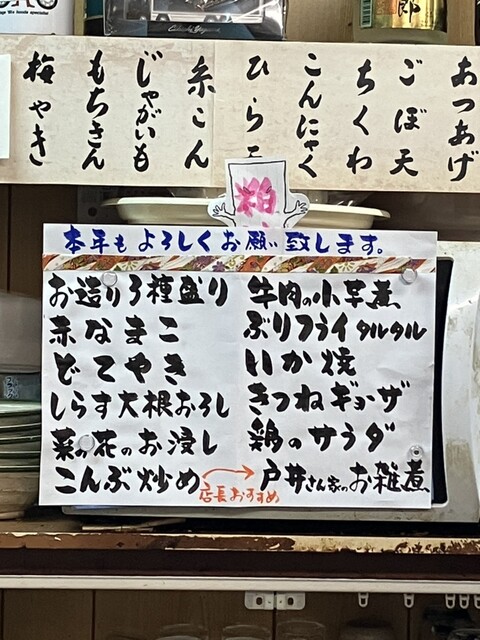 あつあげ
ごぼ天
ちくわ
こんにゃく
ひら天
糸こん
じゃがいも
もちきん
梅やき
本年もよろしくお願い致します。
お造り3種盛り
赤なまこ
どてやき
しらす大根おろし
菜の花のお浸し
こんぶ炒め
牛肉の小芋煮
ぶりフライタルタル
いか焼
きつねギョーザ
鶏のサラダ
戸井さん家のお雑煮
店長おすすめ